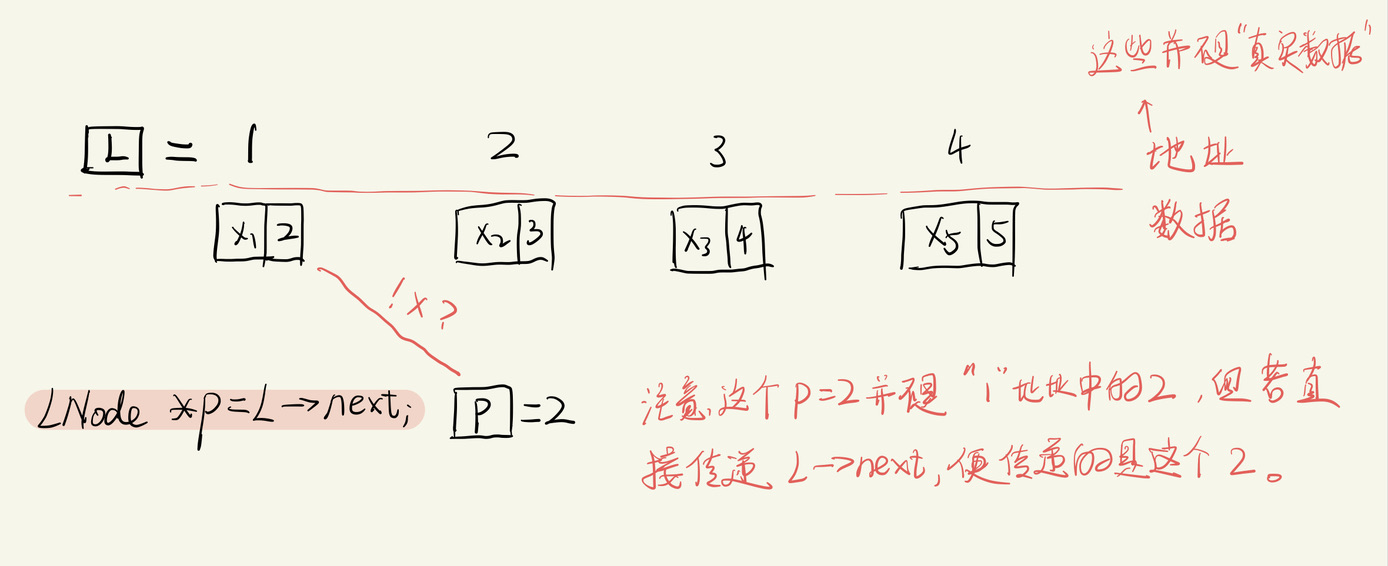 这些并不是“真实数据”
↑
L = 1 2 3 4
地址
x₁ 2 x₂ 3 x₃ 4 x₅ 5
数据
! x ?
LNode *p=L→next;
P =2
注意,这个p=2并不是“1”地址中的2,但若直
接传递L→next,便传递的是这个2。